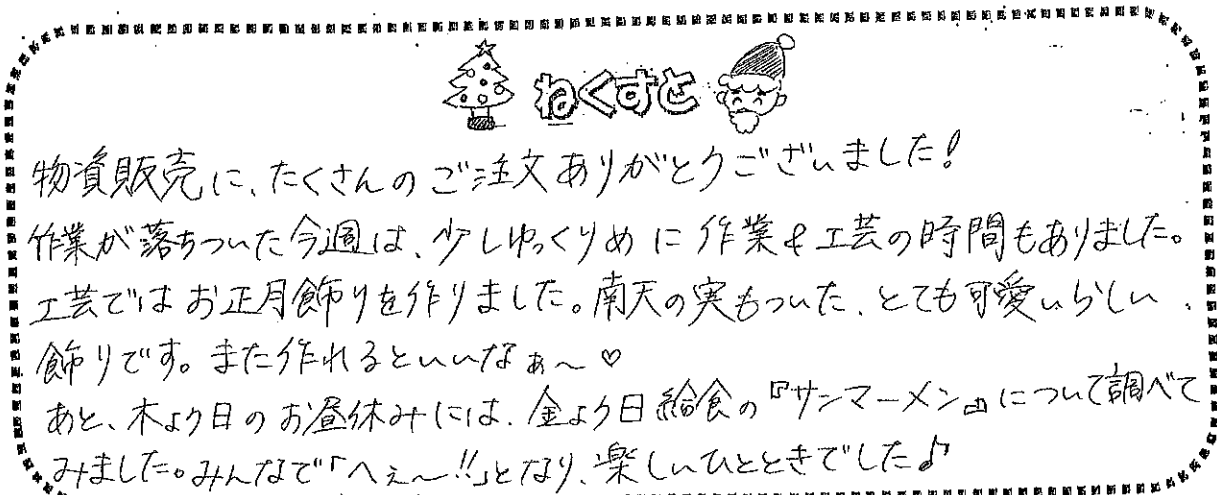 ねくすと
物資販売に、たくさんのご注文ありがとうございました!
作業が落ちついた今週は、少しゆっくりめに作業&工芸の時間もありました。
工芸ではお正月飾りを作りました。南天の実もついた、とても可愛いらしい、
飾りです。また作れるといいなぁ〜♡
あと、木よう日のお昼休みには、金よう日給食の『サンマーメン』について調べて
みました。みんなで「へぇ〜!!」となり、楽しいひとときでした♪